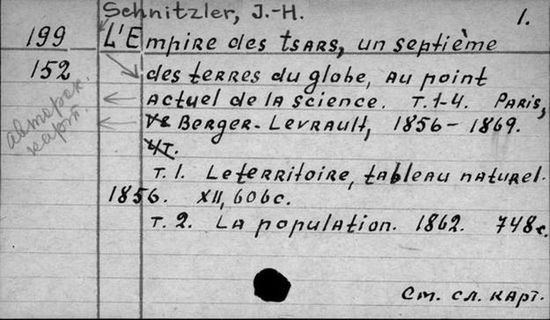 Schnitzler, J.-H. 1.
199 L'Empire des tsars, un septième
152 des terres du globe, au point
actuel de la science. Т.1-4. Paris,
Berger-Levrault, 1856-1869.
4т.
т. 1. Le territoire, tableau naturel.
1856. XII, 606с.
т. 2. La population. 1862. 748с.
См. сл. карт.